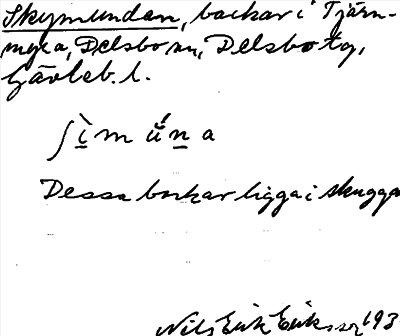 Skymundan, backar i Tjärn-
myra, Delsbo sn, Delsbo tg,
Gävleb. l.
ʃi̠műn̠a
Dessa backar ligga i skugga
Nils Erik Eriksson 193